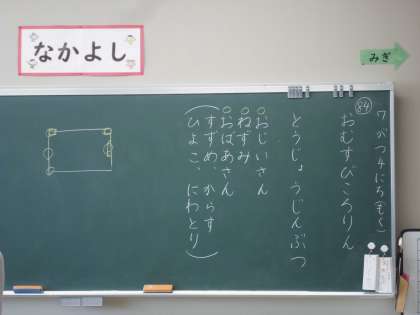 なかよし
みぎ
84
7がつ4にち(もく)
おむすびころりん
とうじょうじんぶつ
○おじいさん
○ねずみ
○おばあさん
(すずめ、からす
ひよこ、にわとり)